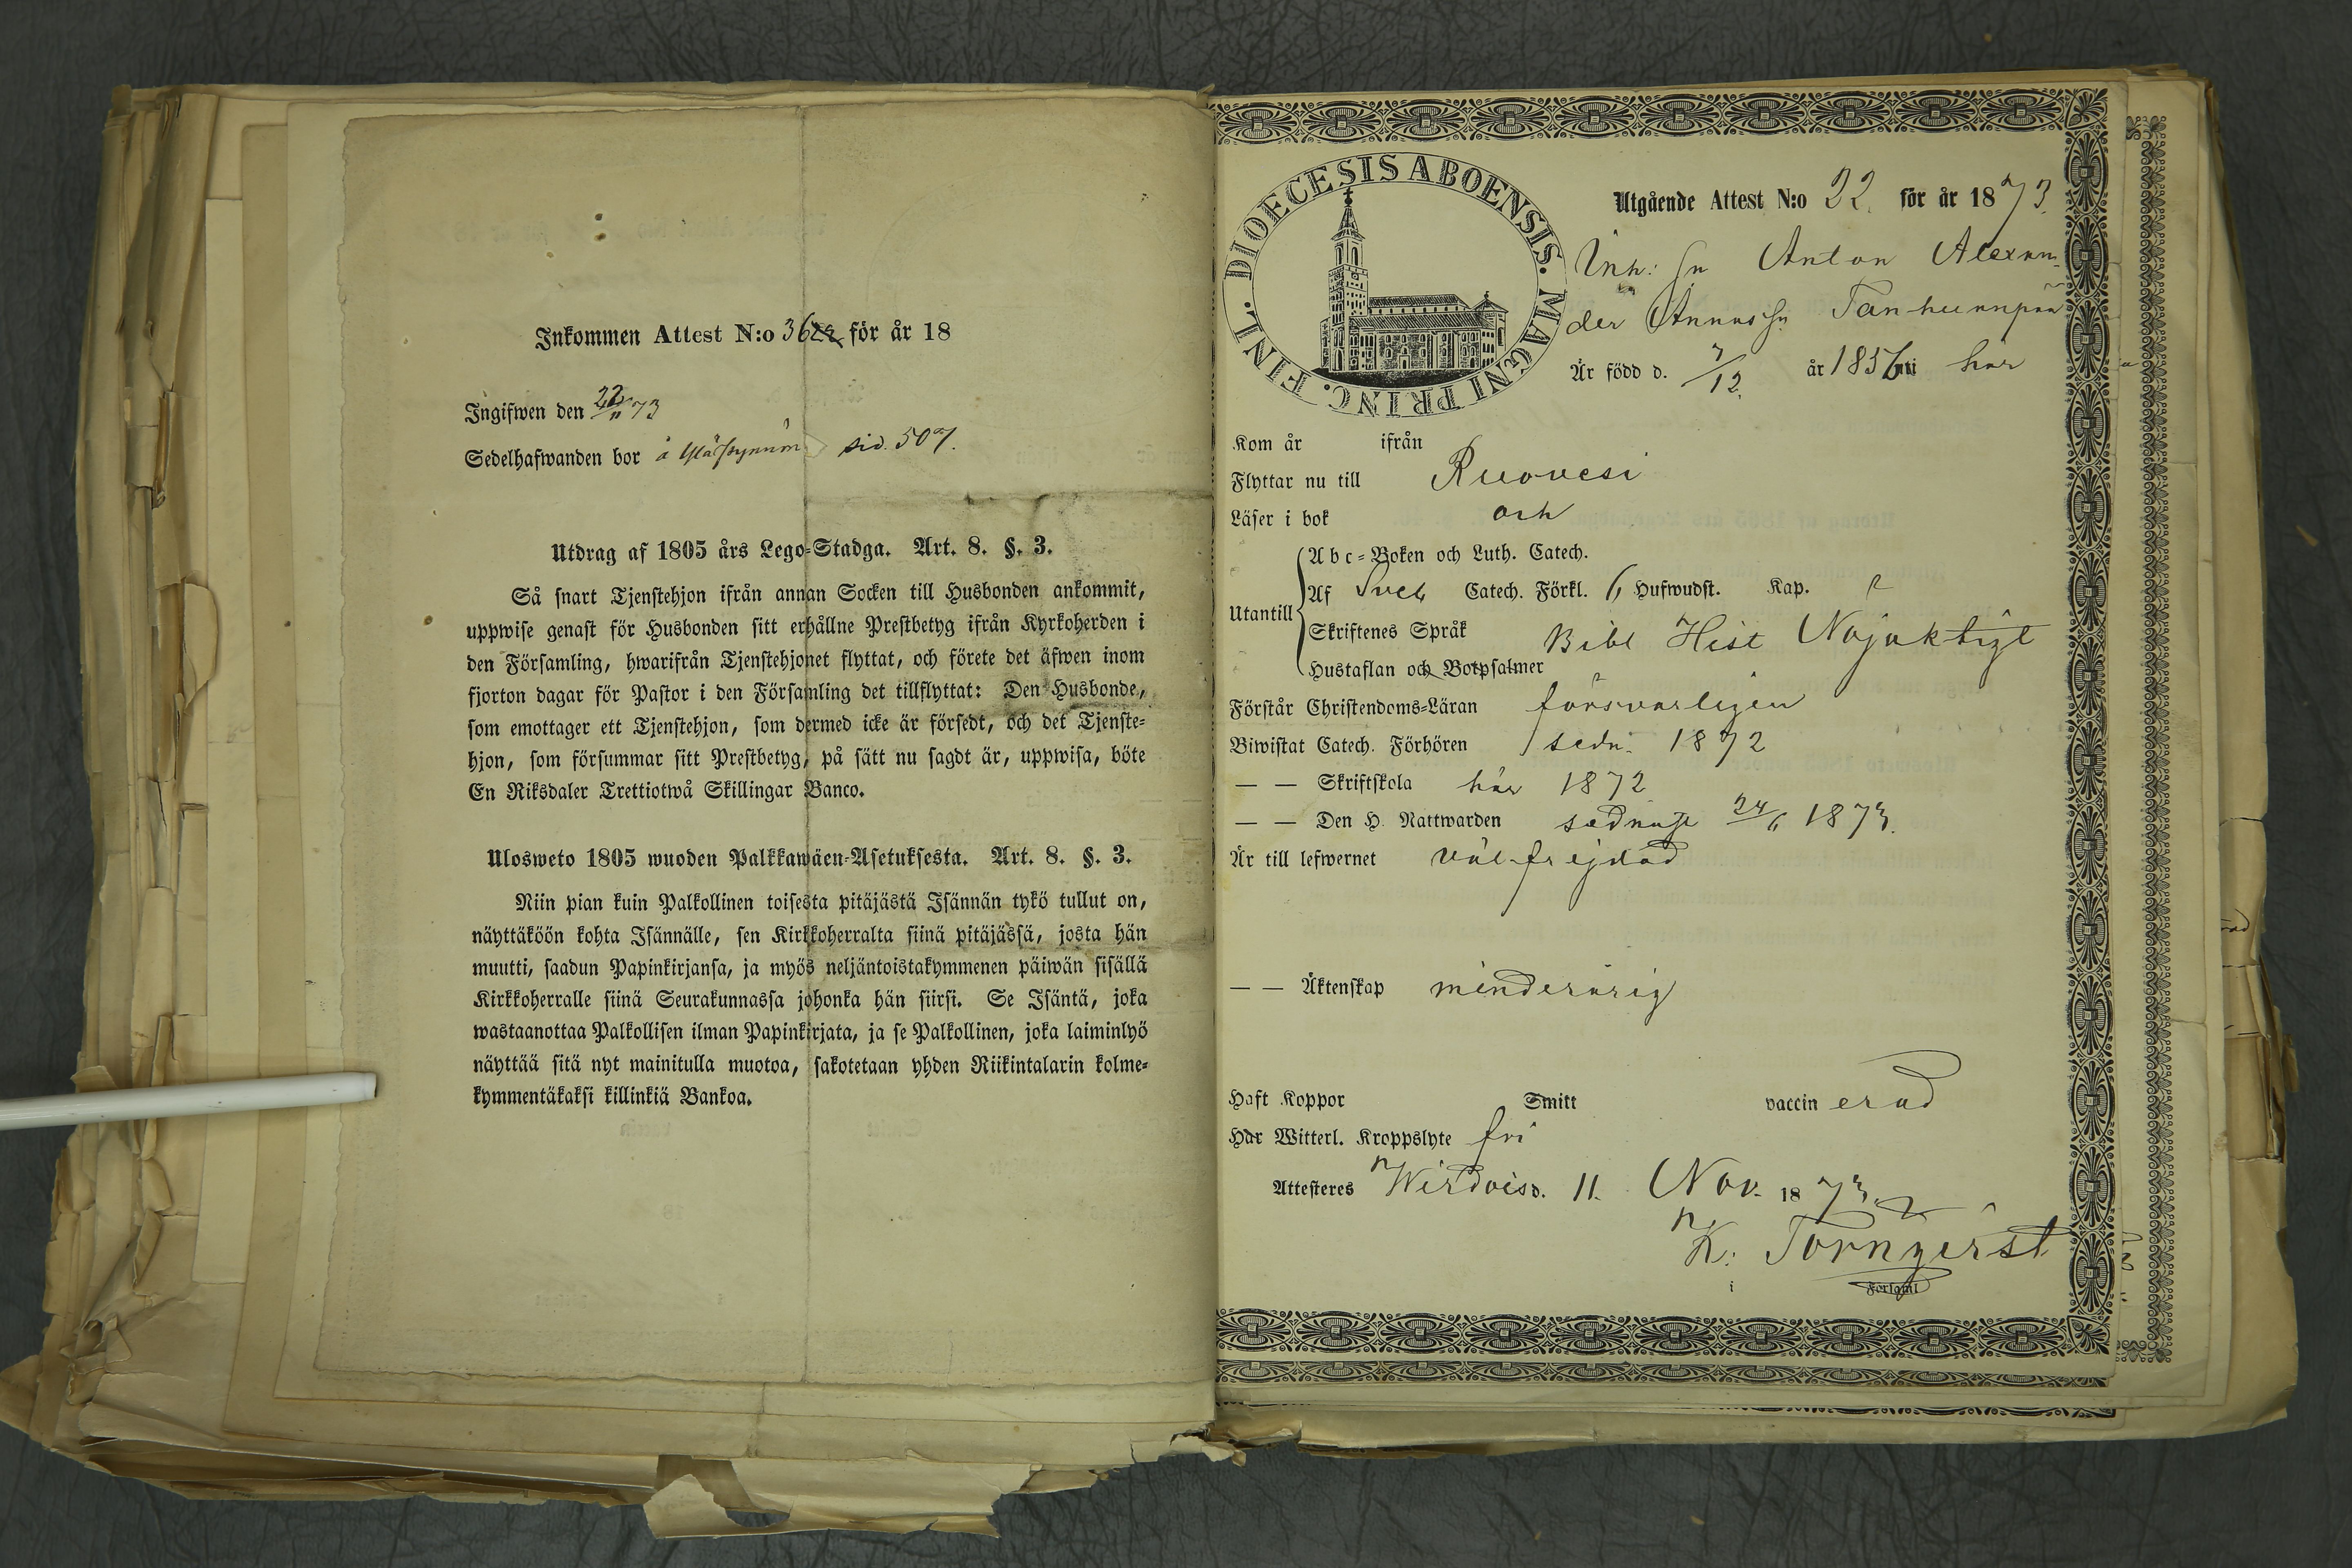 Inkommen Attest N:o 36 för år 18
Ingifwen den 22/11 73
Sedelhafwanden bor å sid. 507.
Utdrag af 1805 års Lego-Stadga. Art. 8. §. 3.
Så snart Tjenstehjon ifrån annan Socken till Husbonden ankommit,
uppwise genast för Husbonden sitt erhållne Prestbetyg ifrån Kyrkoherden i
den Församling, hwarifrån Tjenstehjonet flyttat, och förete det äfwen inom
fjorton dagar för Pastor i den Församling det tillflyttat: Den Husbonde,
som emottager ett Tjenstehjon, som dermed icke är försedt, och det Tjenste-
hjon, som försummar sitt Prestbetyg, på sätt nu sagdt är, uppwisa, böte
En Riksdaler Trettiotwå Skillingar Banco.
Ulosweto 1805 wuoden Palkkawäen-Asetuksesta. Art. 8. §. 3.
Niin pian kuin Palkollinen toisesta pitäjästä Isännän tykö tullut on,
näyttäköön kohta Isännälle, sen Kirkkoherralta siinä pitäjässä, josta hän
muutti, saadun Papinkirjansa, ja myös neljäntoistakymmenen päiwän sisällä
Kirkkoherralle siinä Seurakunnassa johonka hän siirsi. Se Isäntä, joka
wastaanottaa Palkollisen ilman Papinkirjata, ja se Palkollinen, joka laiminlyö
näyttää sitä nyt mainitulla muotoa, sakotetaan yhden Riikintalarin kolme-
kymmentäkaksi killinkiä Bankoa.
FINL. DIOECESIS ABOENSIS. MAGNI PRINC.
Utgående Attest N:o 22. för år 1873.
Inh: Sn Anton Alexan-
der Annas Sn Tanhuanpää
Är född d. 7/12. år 1856 uti här
Kom år ifrån
Flyttar nu till Ruovesi
Läser i bok och
Abc-Boken och Luth. Catech.
Utantill Af Sveb Catech. Förkl. 6 Hufwudst. Kap.
Skriftenes Språk Bibl Hist Nojaktigt
Hustaflan och Botpsalmer
Förstår Christendoms-Läran försvarligen
Biwistat Catech. Förhören sedn. 1872
— — Skriftskola här 1872
— — Den H. Nattwarden sednast 24/6 1873.
Är till lefwernet väl frejdad
— — Äktenskap minderårig
Haft Koppor Smitt vaccin erad
Har Witterl. Kroppslyte fri
Attesteres Wirdois d. 11. Nov. 1873.
K: Törnqvist
i Församl